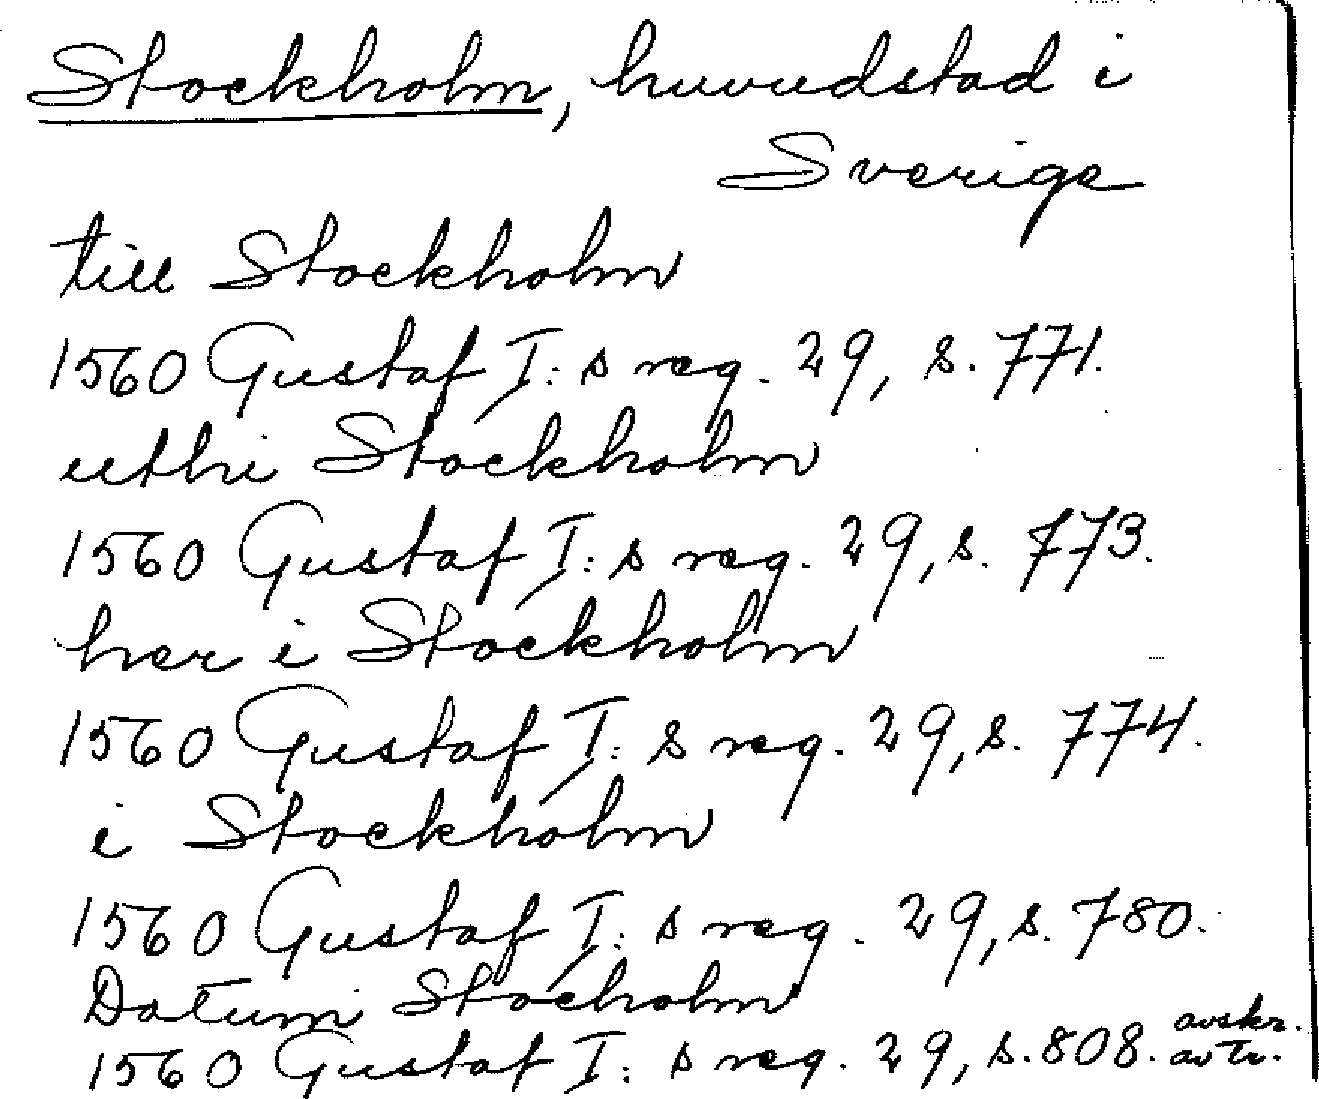 Stockholm, huvudstad i
Sverige
till Stockholm
1560 Gustaf I:s reg. 29, s. 771.
uthi Stockholm
1560 Gustaf I:s reg. 29, s. 773.
her i Stockholm
1560 Gustaf I:s reg. 29, s. 774.
i Stockholm
1560 Gustaf I:s reg. 29, s. 780.
Datum Stocholm
1560 Gustaf I:s reg. 29, s. 808. avskr.
av tr.